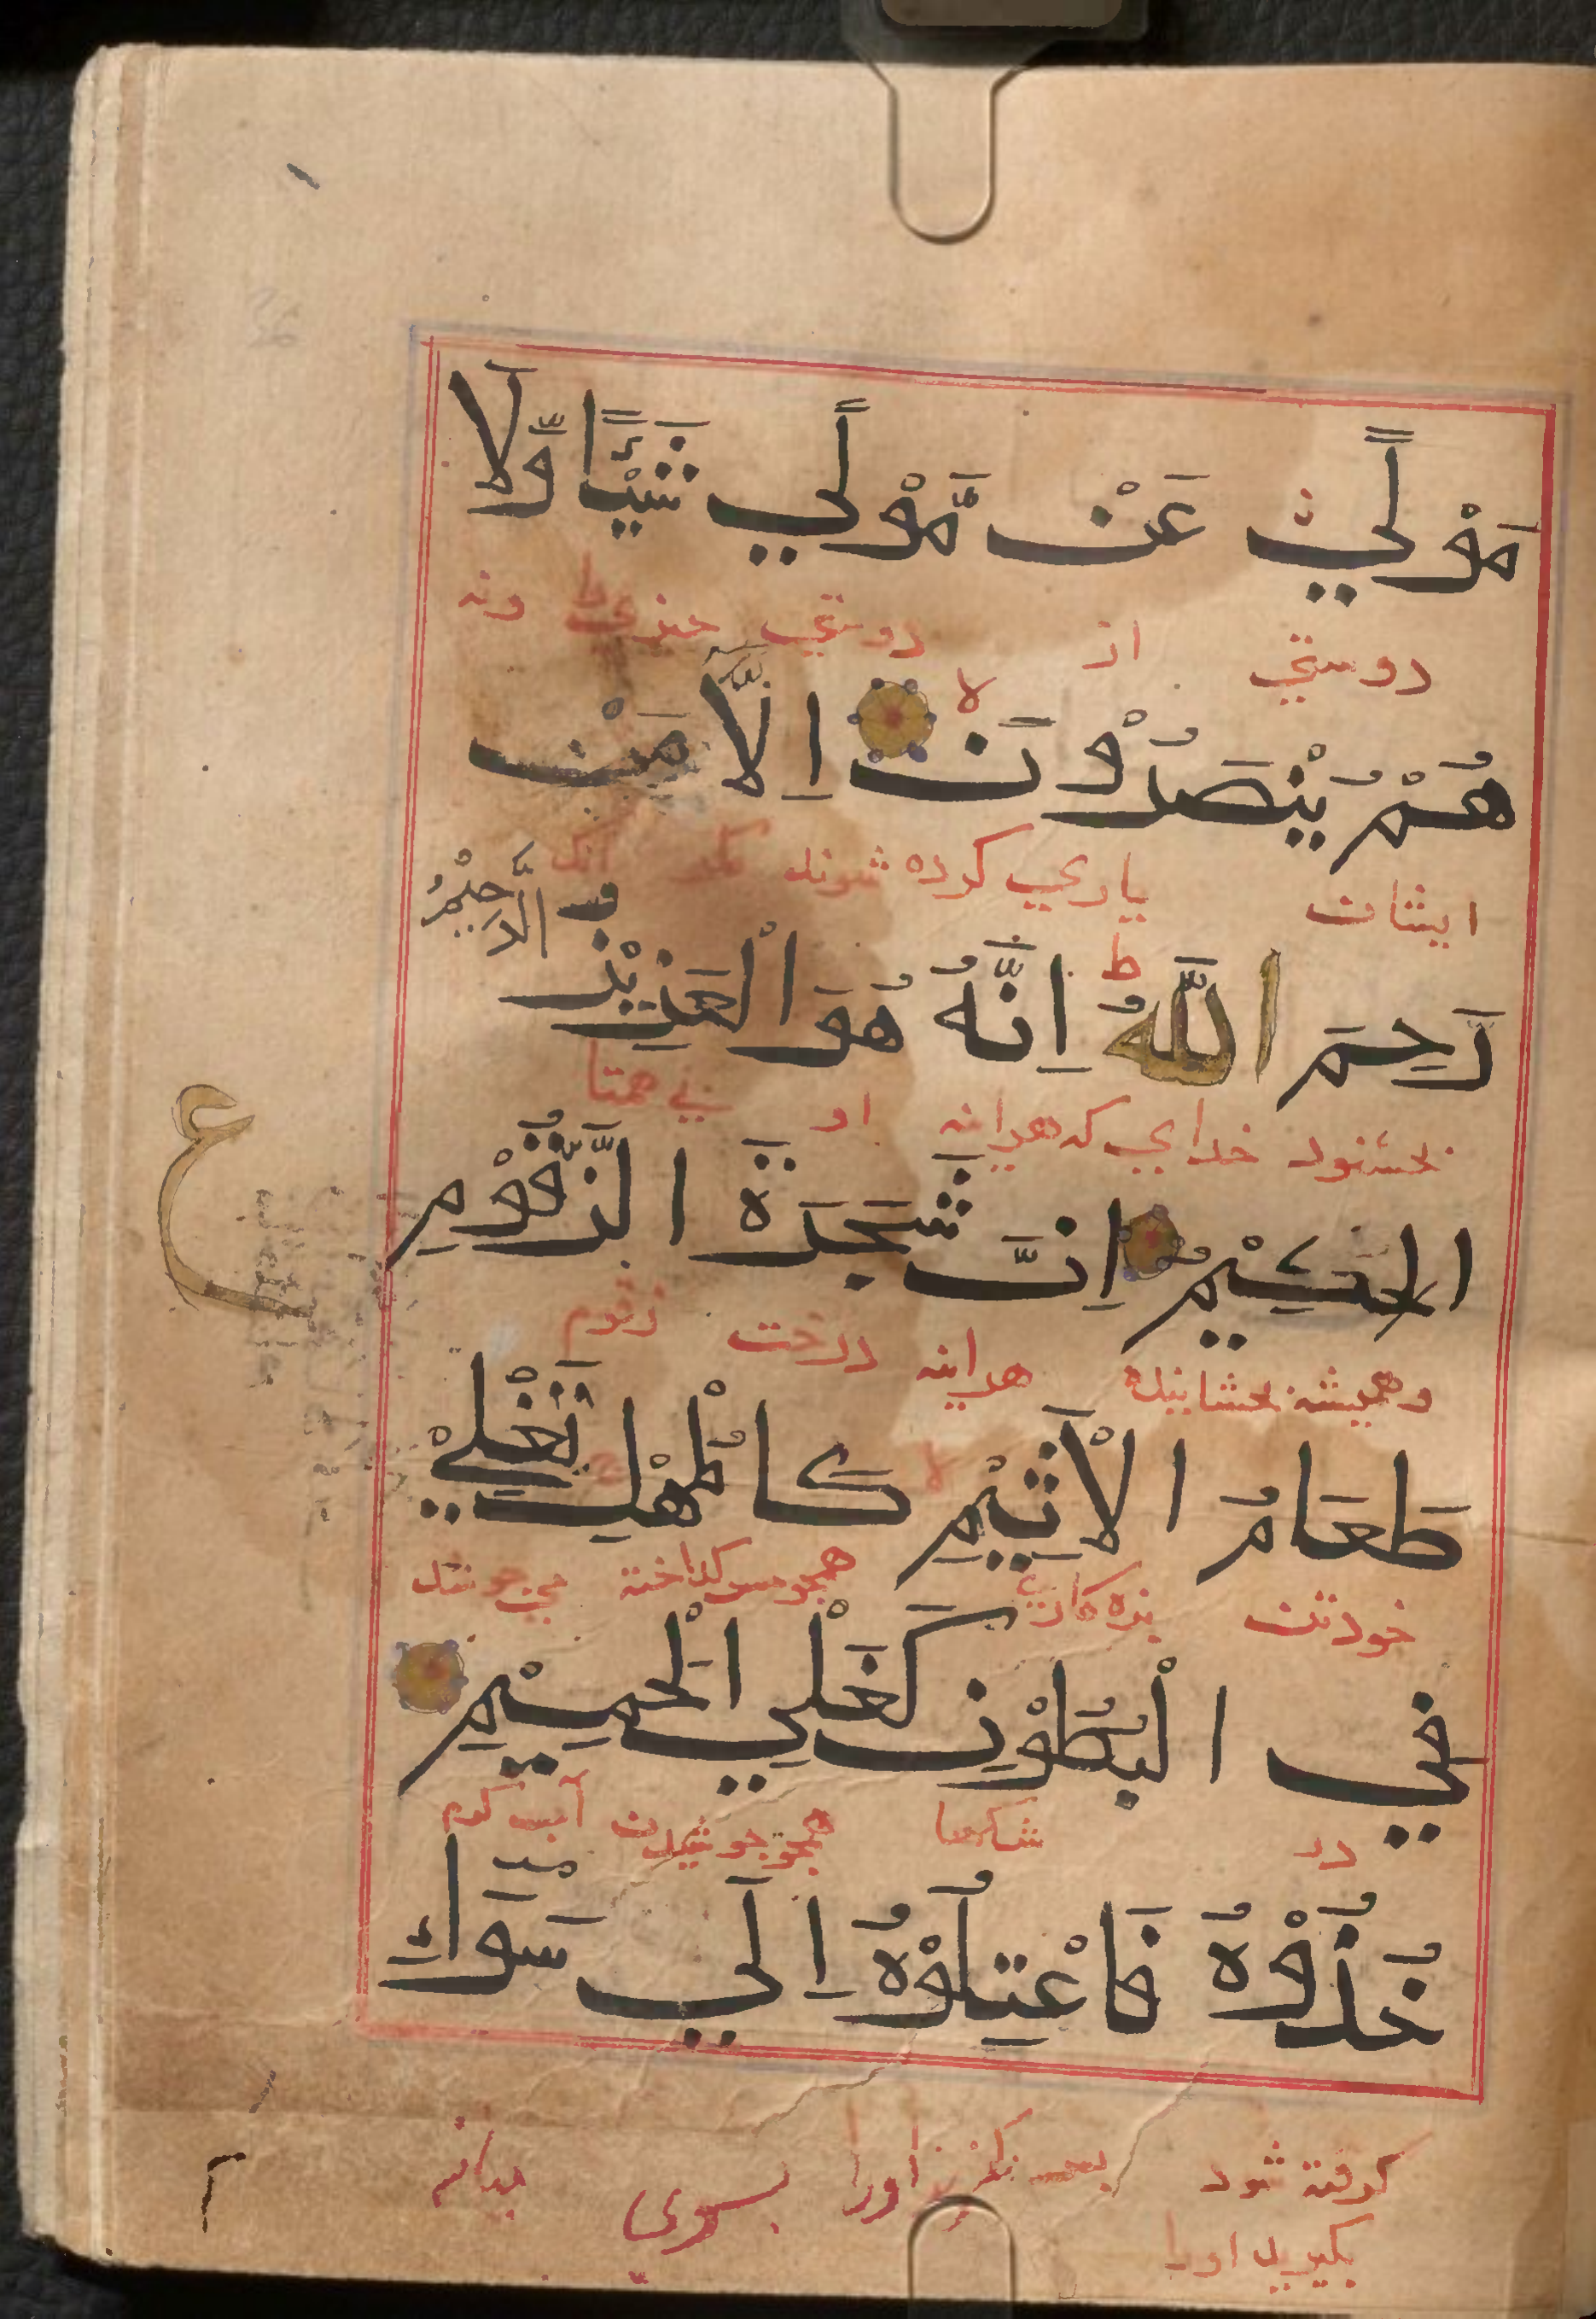 مَوْلًي عَنْ مَّوْلًي شَيْئًا وَّلَا
دوستي از دوستي چيزي را ونه
هُمْ يُنْصَرُوْنَ لا اِلَّا مَنْ
ايشان ياري كرده شوند مكر آنك
رَحِمَ اللّٰهُ ط اِنَّهٗ هُوَ الْعَزِيْزُ الرَّحِيْمُ
بخشنود خداي كه هراينه او بي همتا
الحكِيْمُ اِنَّ شَجَرَةَ الزَّقُّوْمِ
ع
وهميشه بخشاينده هراينه درخت زقوم
طَعَامُ الْاَثِيْمِ لا كَالْمُهْلِ يَغْلِيْ
خوردن بزه كار همچو مس كداخته مي جوشد
فِي الْبُطُوْنِ كَغَلْيِ الْحَمِيْمِ
در شكمها همچو جوشيدن آب كرم
خُذُوْهُ فَاعْتِلُوْهُ اِلَي سَوَاءِ
كرفته شود اورا بسوي ميانه
بكيريد اورا